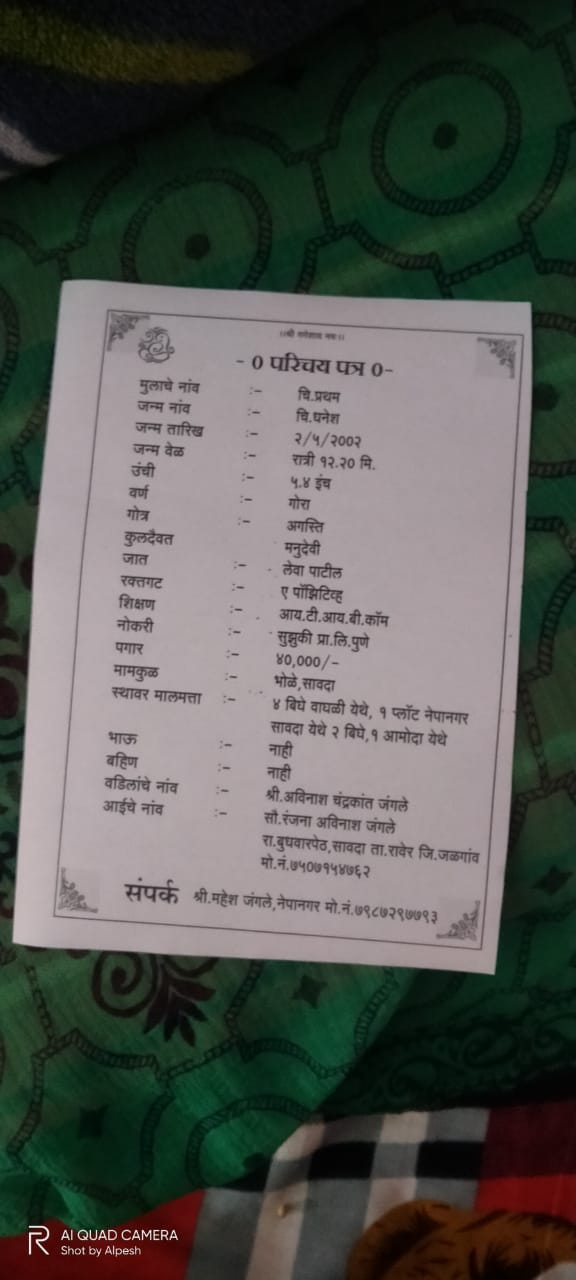 ।।श्री गणेशाय नमः।।
- 0 परिचय पत्र 0-
मुलाचे नांव :- चि.प्रथम
जन्म नांव :- चि.धनेश
जन्म तारिख :- २/५/२००२
जन्म वेळ :- रात्री १२.२० मि.
उंची :- ५.४ इंच
वर्ण :- गोरा
गोत्र :- अगस्ति
कुलदैवत मनुदेवी
जात :- लेवा पाटील
रक्तगट :- ए पॉझिटिव्ह
शिक्षण :- आय.टी.आय.बी.कॉम
नोकरी :- सुझुकी प्रा.लि.पुणे
पगार :- ४०,000/-
मामकुळ :- भोळे,सावदा
स्थावर मालमत्ता :- ४ बिघे वाघळी येथे, १ प्लॉट नेपानगर
सावदा येथे २ बिघे,१ आमोदा येथे
भाऊ :- नाही
बहिण :- नाही
वडिलांचे नांव :- श्री.अविनाश चंद्रकांत जंगले
आईचे नांव :- सौ.रंजना अविनाश जंगले
रा.बुधवारपेठ,सावदा ता.रावेर जि.जळगांव
मो.नं.७५०७१५४७६२
संपर्क श्री.महेश जंगले,नेपानगर मो.नं.७९८७२९७७९३
R AI QUAD CAMERA
Shot by Alpesh